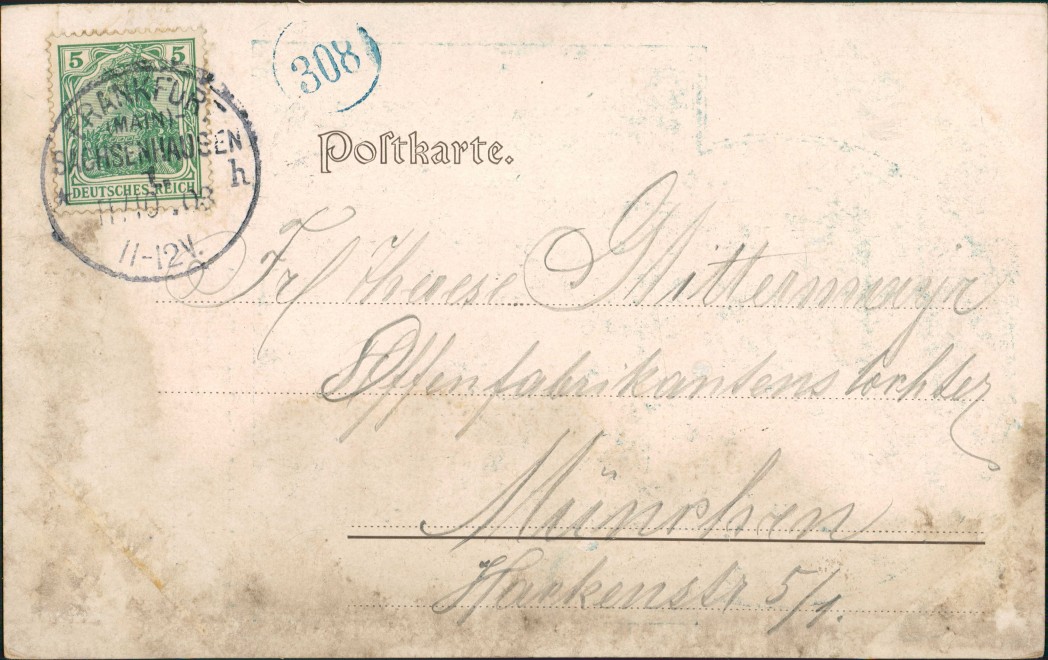 5 5
DEUTSCHES REICH
FRANKFURT
(MAIN)-
SACHSENHAUSEN
1. h
11/10 .03
11-12V.
308
Postkarte.
Frl Therese Mittermayr
Offenfabrikantenstochter
München
Hackenstr 5/1.